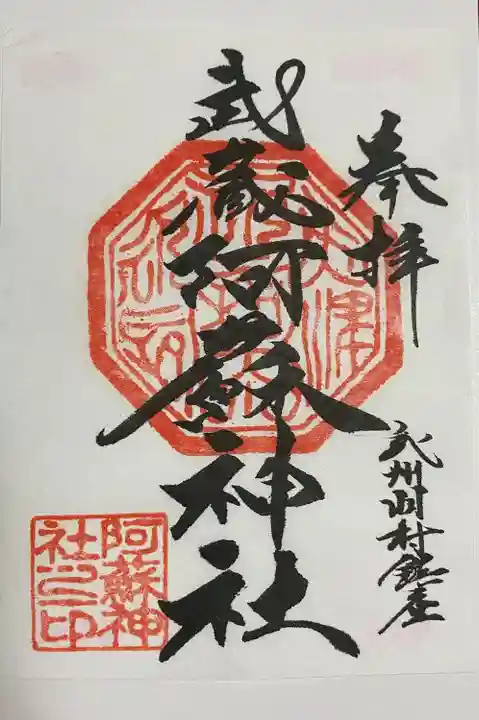 奉拝
武州川村鎮座
武蔵阿蘇神社
阿蘇神
社之印